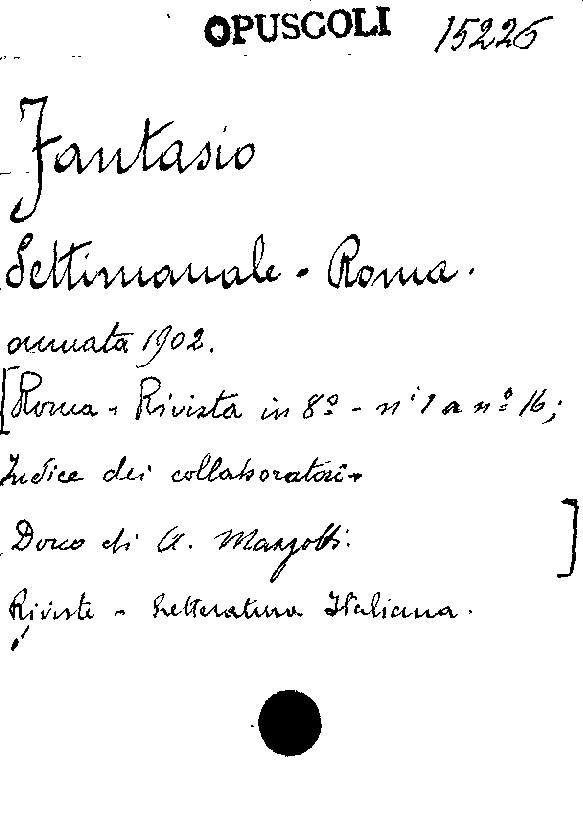 OPUSCOLI 15226
Fantasio
Settimanale - Roma.
annata 1902.
[Roma - Rivista in 8º - nⁱ 1 a nº 16;
Indice dei collaboratori -
Dono di A. Marzotti.]
Riviste - Letteratura Italiana.